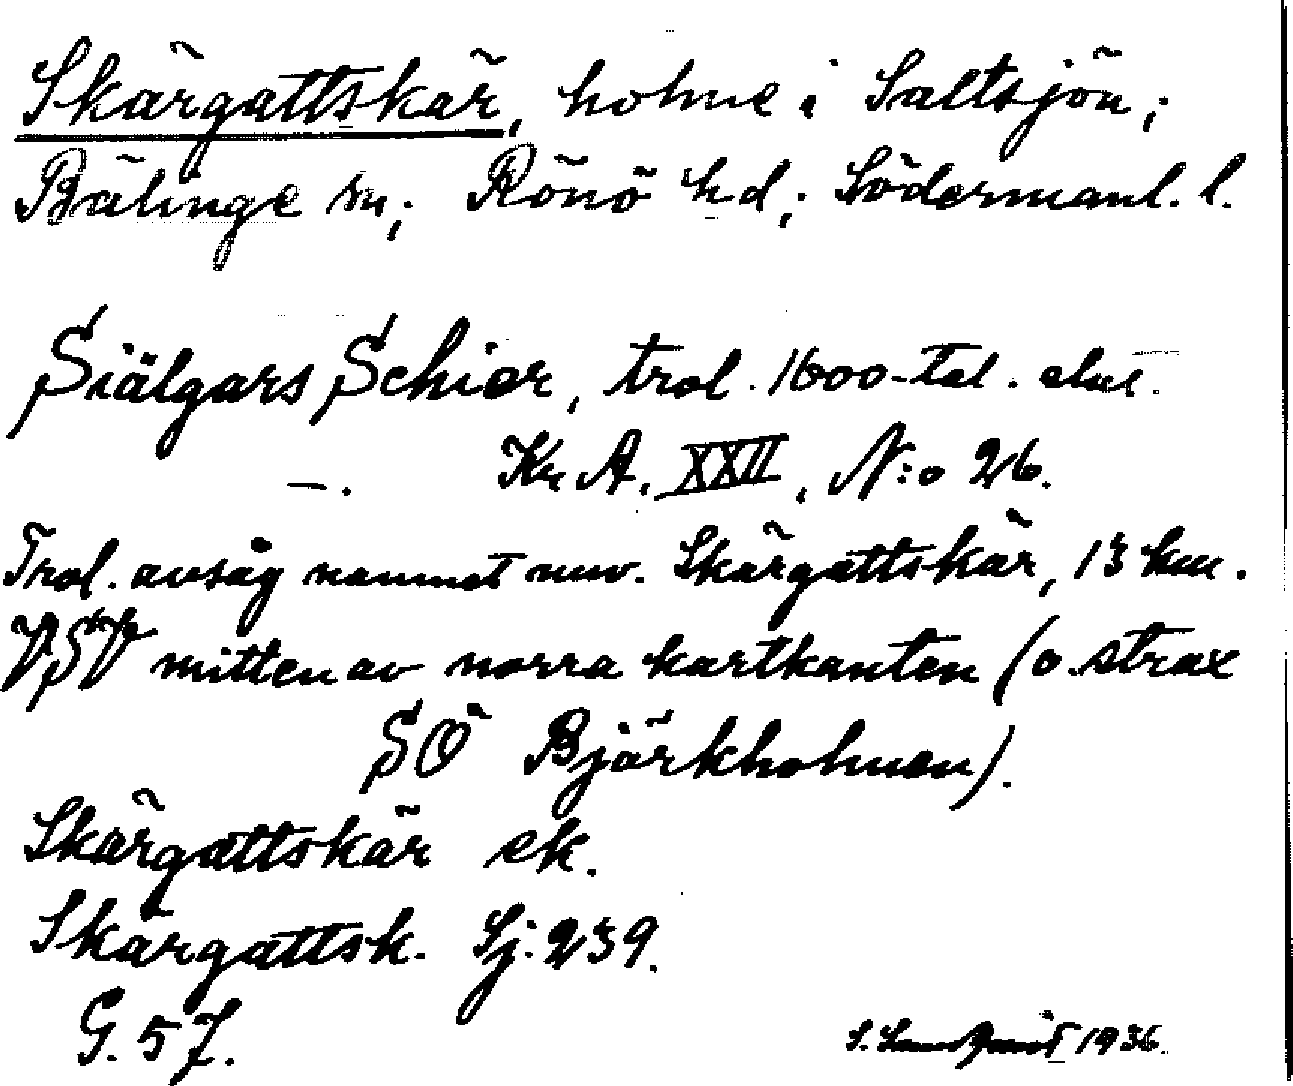 Skärgattskär, holme i Saltsjön;
Bälinge sn; Rönö hd; Södermanl. l.
Siälgars Schier, trol. 1600-tal.
—. Kr A. XXII, N:o 26.
Trol. avsåg namnet nuv. Skärgattskär, 13 km.
VSV mitten av norra kartkanten (o. strax
SÖ Björkholmen).
Skärgattskär ek.
Skärgattsk. Sj: 239.
G. 57.
S. 1936.